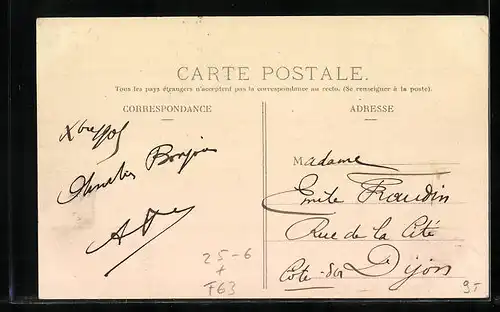 CARTE POSTALE.
Tous les pays étrangers n'acceptent pas la correspondance au recto. (Se renseigner à la poste).
CORRESPONDANCE
ADRESSE
Bonjour
Madame
Emile
Rue de la Cité
Dijon
Côte-d'Or
25-6
+
F63